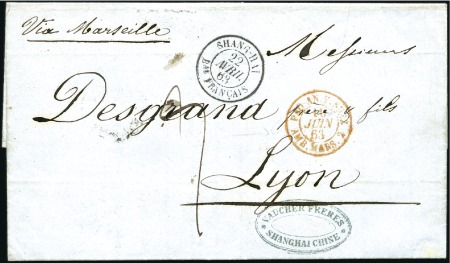 Via Marseille
SHANG-HAI
22
AVRIL
65
Bau FRANÇAIS
Messieurs
Desgrand père & fils
JUIN
65
AMB. MARS.
Lyon
VAUCHER FRERES
SHANGHAI CHINE